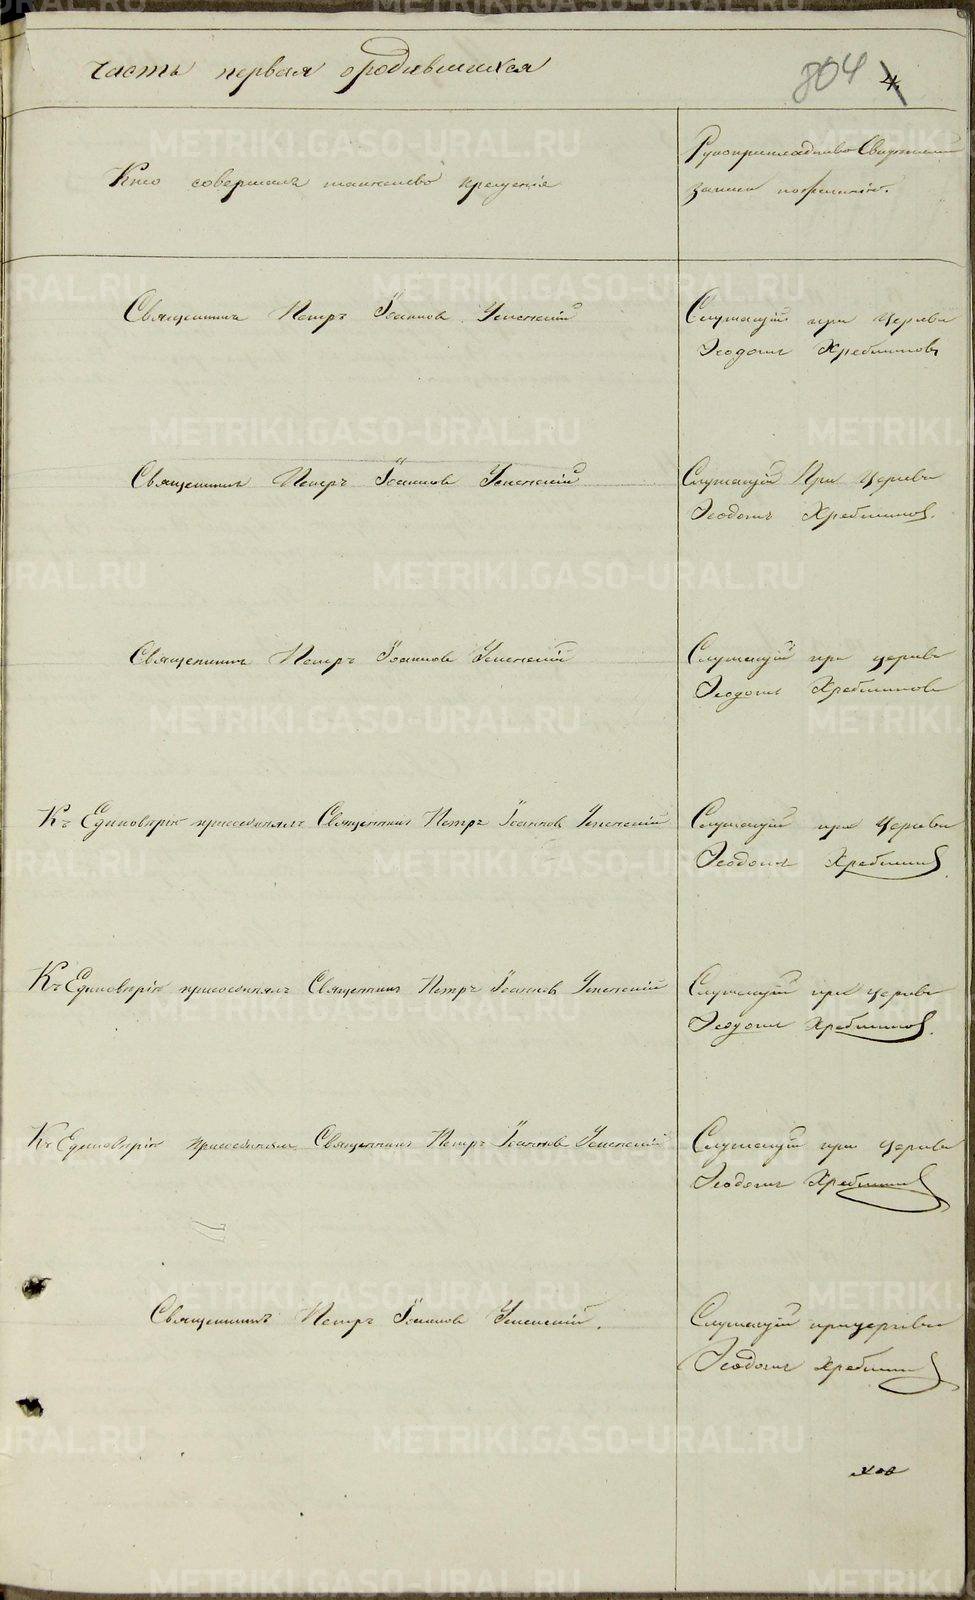 часть первая о родившихся
804 4.
Кто совершалъ таинство крещенія
Рукоприкладство Свидѣтелей
записи по желанію.
Священникъ Петръ Іоанновъ Успенскій
Служащій при Церкви
Ѳеодоръ Хребтиковъ
Священникъ Петръ Іоанновъ Успенскій
Служащій При Церкви
Ѳеодоръ Хребтиковъ.
Священникъ Петръ Іоанновъ Успенскій
Служащій при церкви
Ѳеодоръ Хребтиковъ
Къ Единовѣрію присоединялъ Священникъ Петръ Іоанновъ Успенскій
Служащій при Церкви
Ѳеодоръ
Къ Единовѣрію присоединялъ Священникъ Петръ Іоанновъ Успенскій
Служащій при церкви
Ѳеодоръ
Къ Единовѣрію присоединялъ Священникъ Петръ Іоанновъ Успенскій
Служащій при Церкви
Ѳеодоръ
Священникъ Петръ Іоанновъ Успенскій.
Служащій при церкви
Ѳеодоръ
METRIKI.GASO-URAL.RU